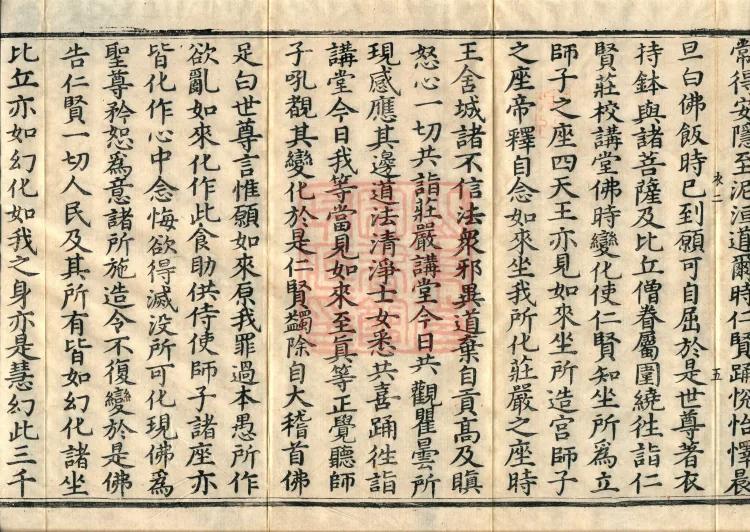 常得安隱至泥洹道爾時仁賢踊悅怡懌晨
旦白佛飯時已到願可自屈於是世尊著衣
持鉢與諸菩薩及比丘僧眷屬圍繞徃詣仁
賢莊校講堂佛時變化使仁賢知坐所爲立
師子之座四天王亦見如來坐所造宮師子
之座帝釋自念如來坐我所化莊嚴之座時
王舍城諸不信法衆邪異道棄自貢高及瞋
怒心一切共詣莊嚴講堂今日共觀瞿曇所
現感應其邊道法清淨士女悉共喜踊徃詣
講堂今日我等當見如來至真等正覺聽師
子吼觀其變化於是仁賢蠲除自大稽首佛
足白世尊言惟願如來原我罪過本愚所作
欲亂如來化作此食助供侍使師子諸座亦
皆化作心中念悔欲得滅没所可化現佛爲
聖尊矜恕爲意諸所施造令不復變於是佛
告仁賢一切人民及其所有皆如幻化諸坐
比丘亦如幻化如我之身亦是慧幻此三千
五